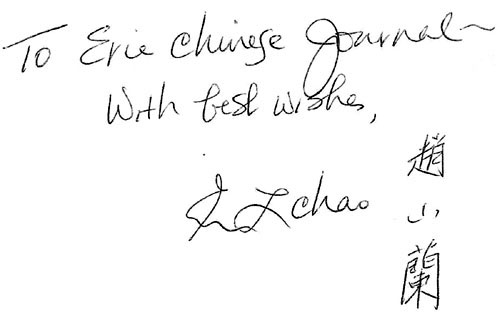 To Erie Chinese Journal
With best wishes,
L Chao
趙小蘭